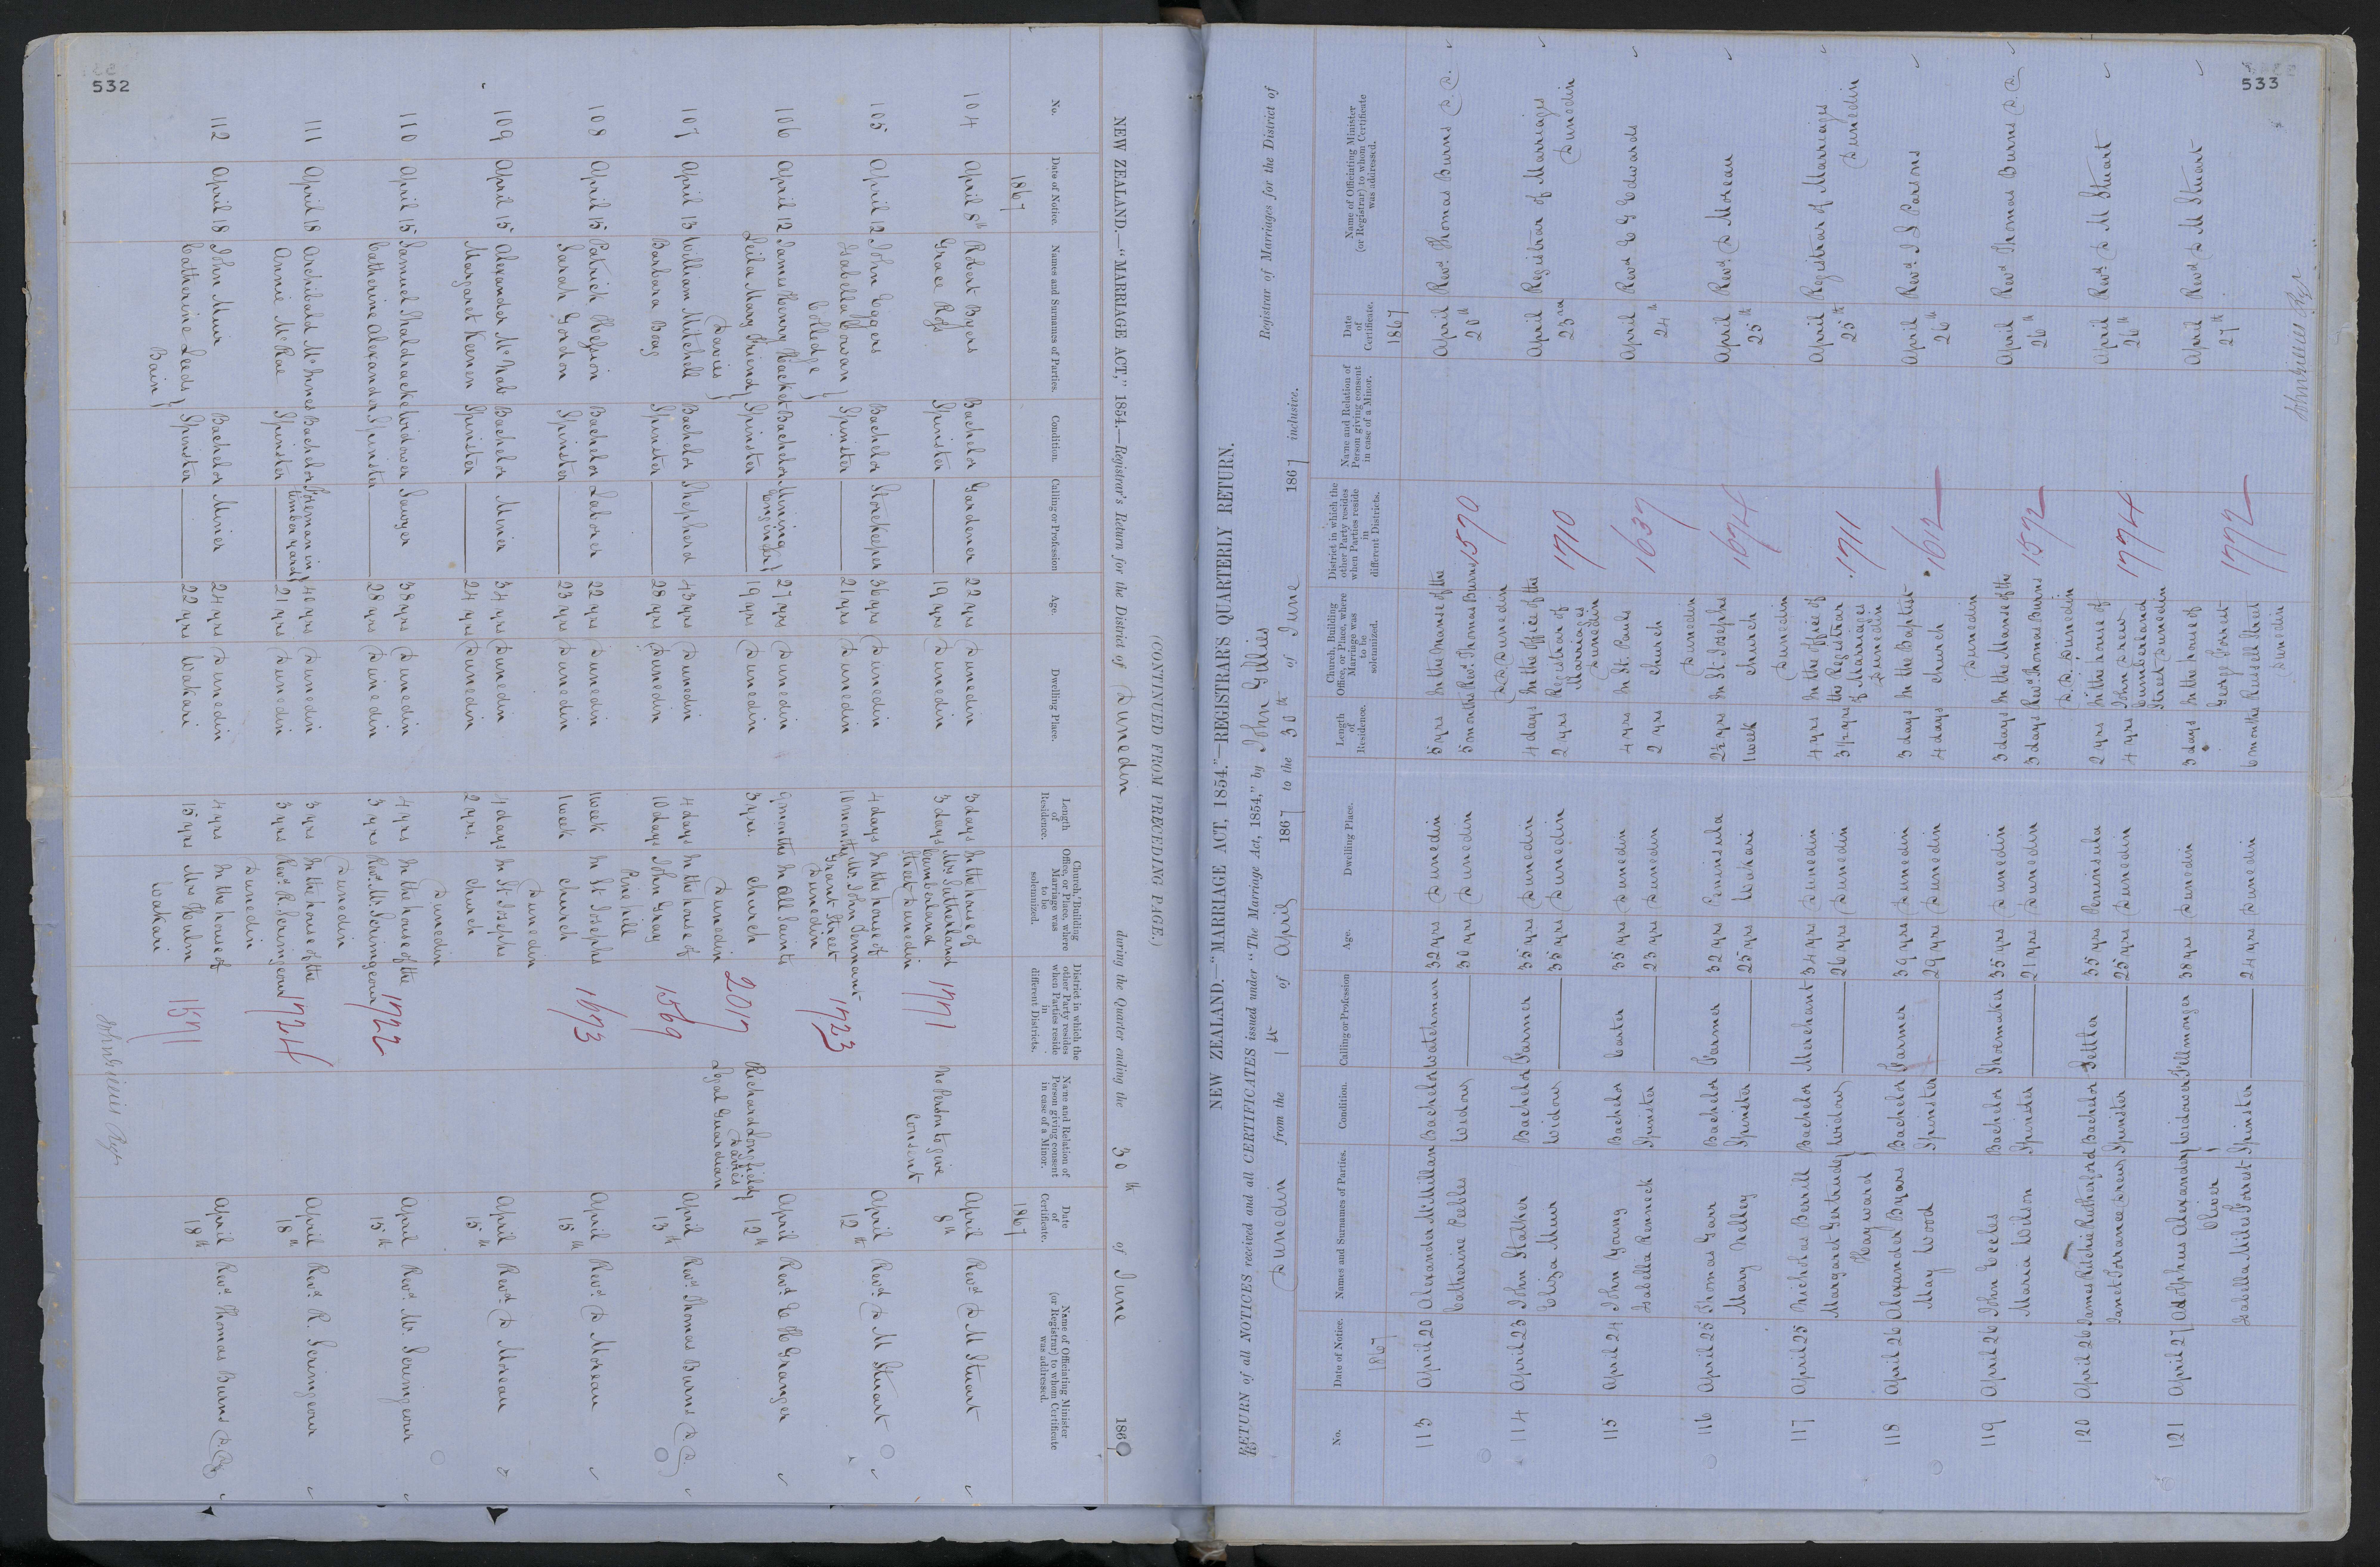 532
NEW ZEALAND.—"MARRIAGE ACT," 1854.—Registrar's Return for the District of Dunedin during the Quarter ending the 30th of June 186
(CONTINUED FROM PRECEDING PAGE.)
No.
Date of Notice.
Names and Surnames of Parties.
Condition.
Calling or Profession
Age.
Dwelling Place.
Length of Residence.
Church, Building Office, or Place, where Marriage was to be solemnized.
District in which the other Party resides when Parties reside in different Districts.
Name and Relation of Person giving consent in case of a Minor.
Date of Certificate.
Name of Officiating Minister (or Registrar) to whom Certificate was addressed.
1867
1867
104 April 8th Robert Byers Bachelor Gardener 22 yrs Dunedin 3 days In the house of April 8th Revd D M Stuart
Grace Ross Spinster 19 yrs Dunedin 3 days Mrs Sutherland 1771 No Person to give
Cumberland consent
Street Dunedin
105 April 12 John Eggers Bachelor Storekeeper 36 yrs Dunedin 4 days In the house of April 12th Revd D M Stuart
Isabella Cowan Spinster 21 yrs Dunedin 10 months Mr John Tennant 1723
Colledge Grant Street
Dunedin
106 April 12 James Henry Hacket Bachelor Mining Engineer 27 yrs Dunedin 9 months In All Saints April 12th Revd E H Granger
Leila Mary Friend Spinster 19 yrs Dunedin 3 yrs. Church 2017 Richard Longfield Davies
Davies Dunedin Legal Guardian
107 April 13 William Mitchell Bachelor Shepherd 43 yrs Dunedin 4 days In the house of April 13th Revd Thomas Burns D.D.
Barbara Boag Spinster 28 yrs Dunedin 10 days John Gray 1569
Pine hill
108 April 15 Patrick Bachelor Laborer 22 yrs Dunedin 1 week In St Josephs April 15th Revd D Moreau
Sarah Gordon Spinster 23 yrs Dunedin 1 week Church 1673
Dunedin
109 April 15 Alexander McNab Bachelor Miner 34 yrs Dunedin 4 days In St Josephs April 15th Revd D Moreau
Margaret Keenen Spinster 24 yrs Dunedin 2 yrs. Church
Dunedin
110 April 15 Samuel Shaldrucke Widower Sawyer 38 yrs Dunedin 4 yrs In the house of the April 15th Revd M. Scrimgeour
Catherine Alexander Spinster 28 yrs Dunedin 3 yrs Revd Mr. Scrimgeour 1722
Dunedin
111 April 18 Archibald McInnes Bachelor Foreman in timber yard 40 yrs Dunedin 3 yrs In the house of the April 18th Revd R. Scrimgeour
Annie McRae Spinster 21 yrs Dunedin 3 yrs Revd R. Scrimgeour 1724
Dunedin
112 April 18 John Muir Bachelor Miner 24 yrs Dunedin 4 yrs In the house of April 18th Revd Thomas Burns D.D.
Catherine Leeds Spinster 22 yrs Wakari 15 yrs Mrs Hulm 1571
Bain Wakari
John Gillies Regr
533
NEW ZEALAND.—"MARRIAGE ACT, 1854."—REGISTRAR'S QUARTERLY RETURN.
RETURN of all NOTICES received and all CERTIFICATES issued under "The Marriage Act, 1854," by John Gillies Registrar of Marriages for the District of
Dunedin from the 1st of April 1867 to the 30th of June 1867 inclusive.
No.
Date of Notice.
Names and Surnames of Parties.
Condition.
Calling or Profession
Age.
Dwelling Place.
Length of Residence.
Church, Building Office, or Place, where Marriage was to be solemnized.
District in which the other Party resides when Parties reside in different Districts.
Name and Relation of Person giving consent in case of a Minor.
Date of Certificate.
Name of Officiating Minister (or Registrar) to whom Certificate was addressed.
1867
1867
113 April 20 Alexander McMillan Bachelor Watchman 32 yrs Dunedin 5 yrs In the Manse of the April 20th Revd. Thomas Burns D.D.
Catherine Peebles Widow 30 yrs Dunedin 5 months Revd. Thomas Burns 1570
D.D. Dunedin
114 April 23 John Stalker Bachelor Farmer 35 yrs Dunedin 4 days In the Office of the April 23rd Registrar of Marriages
Eliza Muir Widow 35 yrs Dunedin 2 yrs Registrar of 1710 Dunedin
Marriages
Dunedin
115 April 24 John Young Bachelor Carter 35 yrs Dunedin 4 yrs In St. Pauls April 24th Revd E G Edwards
Isabella Renneck Spinster 23 yrs Dunedin 2 yrs Church 1637
Dunedin
116 April 25 Thomas Garr Bachelor Farmer 32 yrs Peninsula 2½ yrs In St Josephs April 25th Revd. D Moreau
Mary Kelley Spinster 25 yrs Wakari 1 week Church 1674
Dunedin
117 April 25 Nicholas Berrill Bachelor Merchant 34 yrs Dunedin 4 yrs In the office of April 25th Registrar of Marriages
Margaret Gertrude Widow 26 yrs Dunedin 3½ yrs the Registrar 1711 Dunedin
Hayward of Marriages
Dunedin
118 April 26 Alexander Byars Bachelor Farmer 39 yrs Dunedin 3 days In the Baptist April 26th Revd. J L Parsons
May Wood Spinster 29 yrs Dunedin 4 days Church 1612
Dunedin
119 April 26 John Eccles Bachelor Shoemaker 35 yrs Dunedin 3 days In the Manse of the April 26th Revd Thomas Burns D.D
Maria Wilson Spinster 21 yrs Dunedin 3 days Revd. Thomas Burns 1572
D.D. Dunedin
120 April 26 James Ritchie Rutherford Bachelor Settler 35 yrs Peninsula 2 yrs In the house of April 26th Revd D M Stuart
Janet Torrance Drew Spinster 25 yrs Dunedin 4 yrs John Drew 1774
Cumberland
Street Dunedin
121 April 27 Adolphus Alexander Widower Fellmonger 38 yrs Dunedin 3 days In the house of April 27th Revd D M Stuart
Oliver George Forrest
Isabella Milne Forrest Spinster 24 yrs Dunedin 6 months Russell Street 1772
Dunedin
John Gillies Regr